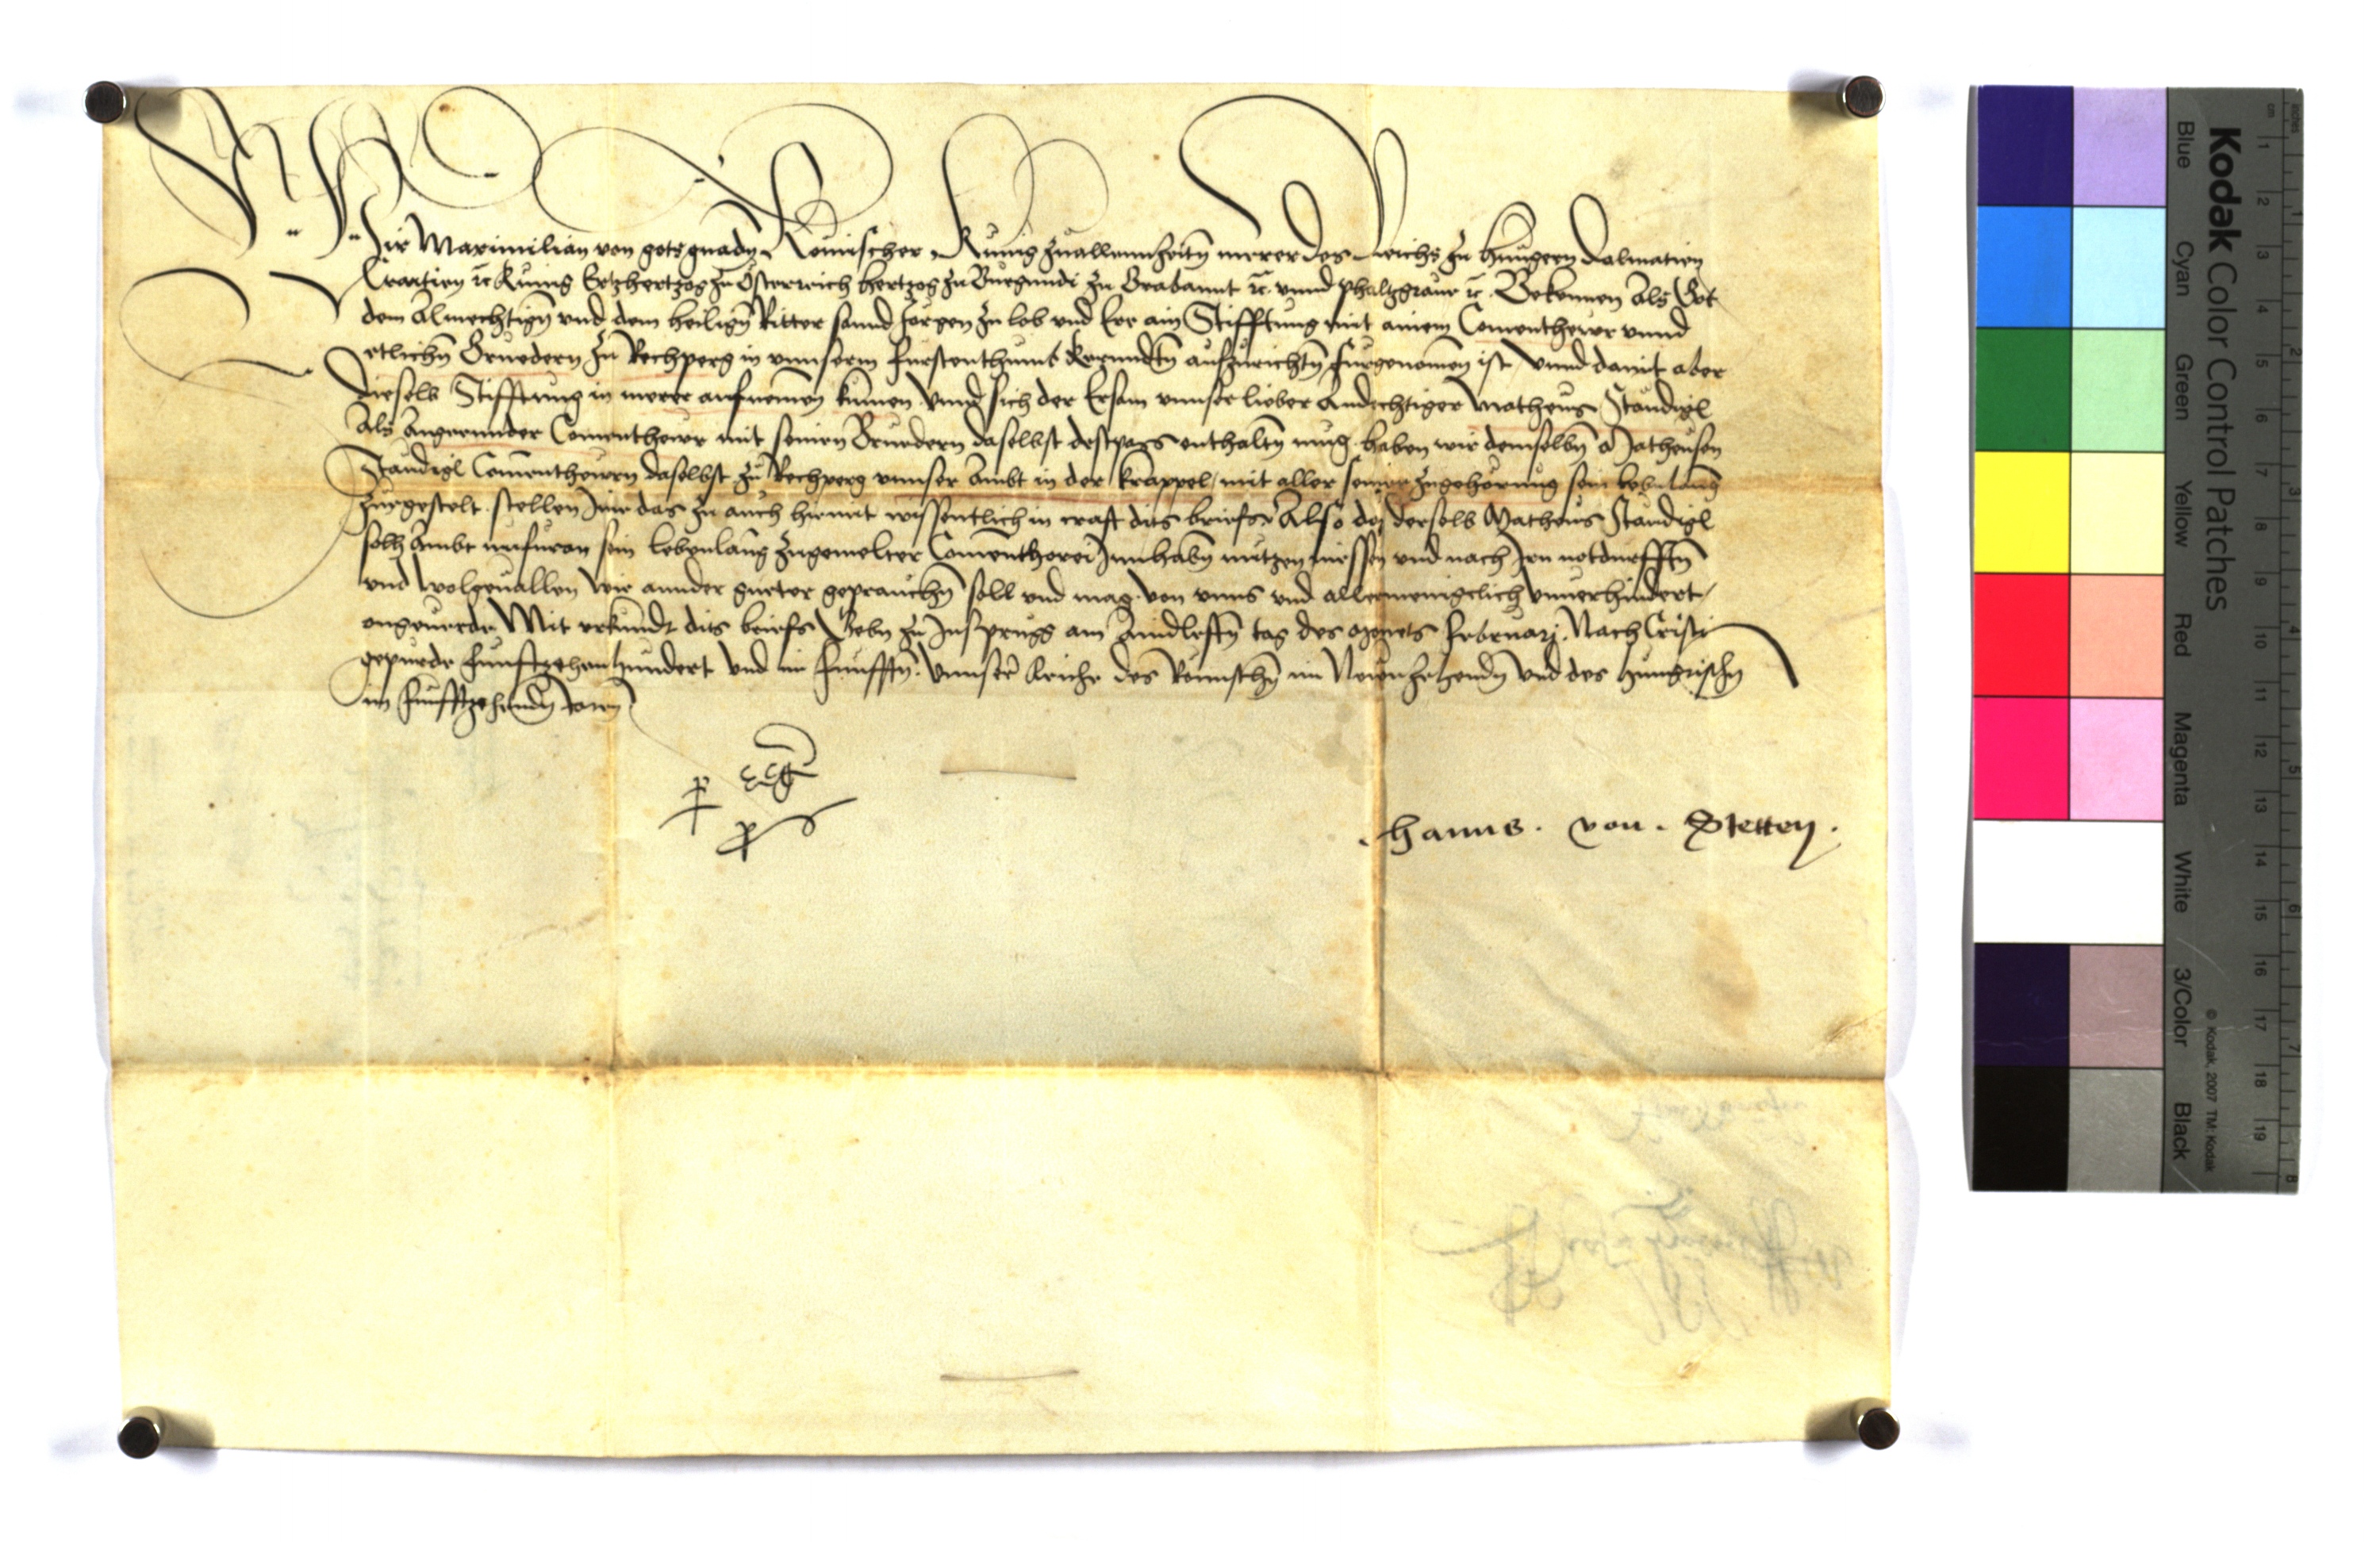 Wir Maximilian von gots gnadn Romischer Kunig zuallennzeitn merer des Reichs zu hungern Dalmatien
Croatien ꝛc Kunig Ertzhertzog zu Osterreich hertzog zu Burgundi zu Brabannt ꝛc. vnnd phaltzgraue ꝛc. Bekennen Als Got
dem Almechtign vnd dem heilign Ritter sannd Jorgen zu lob vnd Eer ain Stifftung mit ainem Comenthewr vnnd
etlichn Bruedern zu Rechperg in vnnserm furstenthumb Kerndtn aufzurichtn furgenomen ist, vnnd damit aber
dieselb Stifftung in merer aufnemen kumen vnnd sich der Ersam vnnser lieber Andechtiger Matheus Staudigl
Als Angeennder Comenthewr mit seinen Bruedern daselbst destpas enthaltn mug. haben wir demselbn Matheusen
Staudigl Comenthewrn daselbst zu Rechperg vnnser Ambt in der Krappel, mit aller seiner zugehorung sein lebnlanng
zurgestelt. stellen Im das zu auch hiemit wissentlich in craft dits briefs Also daz derselb Matheus Staudigl
solh Ambt nufuran sein lebenlang zugemelter Comenthorei Innhabn nutzen niessen vnd nach Irn notdurfftn
vnd wolgeuallen wie annder gueter geprauchn soll vnd mag. von vnns vnd allermenigclich vnuerhindert,
ongeuerde Mit vrkundt dits briefs Gebn zu Insprugg am Aindlefftn tag des Monets Februarj. Nach Cristi
gepurde funftzehenhundert vnd im funfftn. vnnser Reiche des Romischn im Newnzehendn vnd des hungrischn
im funfftzehendn Jarn
Hanns. von. Stetten.
Kodak Color Control Patches
Blue Cyan Green Yellow Red Magenta White 3/Color Black
© Kodak, 2007 TM: Kodak
inches 1 2 3 4 5 6 7 8
cm 1 2 3 4 5 6 7 8 9 10 11 12 13 14 15 16 17 18 19